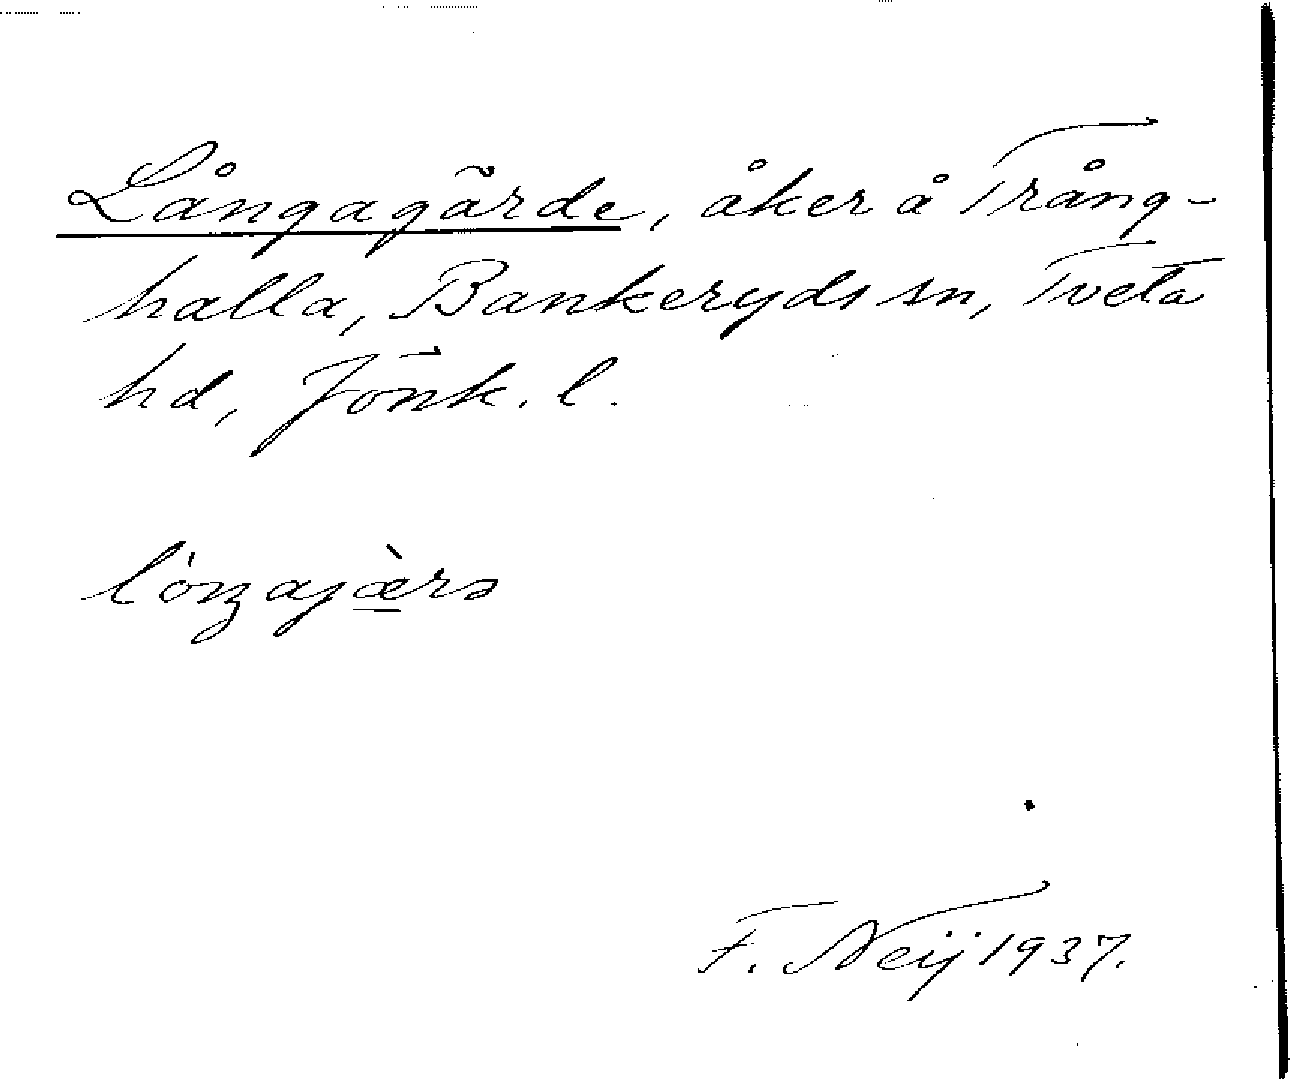 Långagärde, åker å Trång-
halla, Bankeryds sn, Tveta
hd, Jönk. l.
lóŋajæ̀rə
F. Neij 1937.